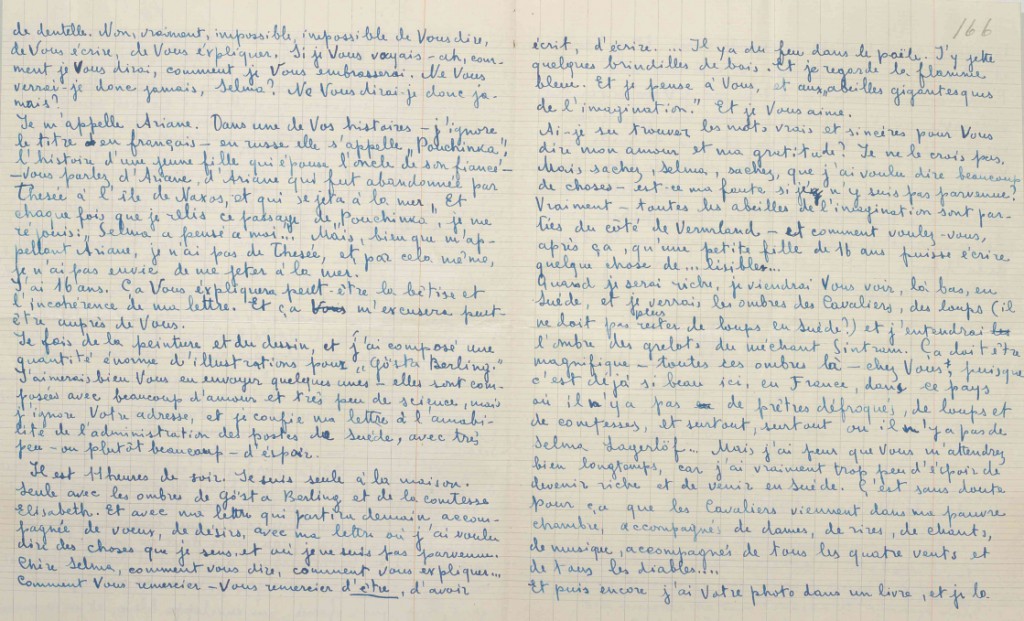 de dentelle. Non, vraiment, impossible, impossible de Vous dire,
de Vous écrire, de Vous expliquer. Si je Vous voyais – ah, com-
ment je Vous dirai, comment je Vous embrasserai. Ne Vous
verrai-je donc jamais, Selma? Ne Vous dirai-je donc ja-
mais?
Je m'appelle Ariane. Dans une de Vos histoires – j'ignore
le titre en français – en russe elle s'appelle „Pouchinka",
l'histoire d'une jeune fille qui épousa l'oncle de son fiancé –
– vous parlez d'Ariane, d'Ariane qui fut abandonnée par
Thésée à l'île de Naxos, et qui se jeta à la mer. Et
chaque fois que je relis ce passage de „Pouchinka", je me
réjouis: „Selma a pensé à moi"... Mais, bien que m'ap-
pellant Ariane, je n'ai pas de Thesée, et par cela même,
je n'ai pas envie de me jeter à la mer.
J'ai 16 ans. Ça Vous expliquera peut-être la bêtise et
l'incohérence de ma lettre. Et ça m'excusera peut-
être auprès de Vous.
Je fais de la peinture et du dessin, et j'ai composé une
quantité énorme d'illustrations pour „Gösta Berling."
J'aimerais bien Vous en envoyer quelques unes – elles sont com-
posées avec beaucoup d'amour et très peu de science, mais
j'ignore Votre adresse, et je confie ma lettre à l'amabi-
lité de l'administration des postes de Suède, avec très
peu – ou plutôt beaucoup – d'espoir.
Il est 11 heures de soir. Je suis seule à la maison.
Seule avec les ombres de Gösta Berling et de la comtesse
Elisabeth. Et avec ma lettre qui partira demain accom-
pagnée de voeux, de désirs, avec ma lettre où j'ai voulu
dire des choses que je sens, et où je ne suis pas parvenue.
Chère Selma, comment vous dire, comment vous expliquer...
Comment Vous remercier – Vous remercier d'être, d'avoir
166
écrit, d'écrire. ... Il y a du feu dans le poële. J'y jette
quelques brindilles de bois. Et je regarde la flamme
bleue. Et je pense à Vous, et aux „abeilles gigantesques
de l'imagination." Et je Vous aime.
Ai-je su trouver les mots vrais et sincères pour Vous
dire mon amour et ma gratitude? Je ne le crois pas.
Mais sachez, Selma, sachez, que j'ai voulu dire beaucoup
de choses – est-ce ma faute si je n'y suis pas parvenue?
Vraiment – toutes les abeilles de l'imagination sont par-
ties du côté de Vermland – et comment voulez-vous,
après ça, qu'une petite fille de 16 ans puisse écrire
quelque chose de... lisibles...
Quand je serai riche, je viendrai Vous voir, là bas, en
Suède, et je verrais les ombres des Cavaliers, des loups (il
ne doit pas rester plus de loups en Suède?) et j'entendrai
l'ombre des grelots du méchant Sintram. Ça doit être
magnifique – toutes ces ombres là – chez Vous, puisque
c'est déjà si beau ici, en France, dans ce pays
où il n'y a pas de prêtres défroqués, de loups et
de comtesses, et surtout, surtout où il n'y a pas de
Selma Lagerlöf... Mais j'ai peur que Vous m'attendrez
bien longtemps, car j'ai vraiment trop peu d'espoir de
devenir riche et de venir en Suède. C'est sans doute
pour ça que les Cavaliers viennent dans ma pauvre
chambre, accompagnés de dames, de rires, de chants,
de musique, accompagnés de tous les quatre vents et
de tous les diables....
Et puis encore j'ai Votre photo dans un livre, et je la